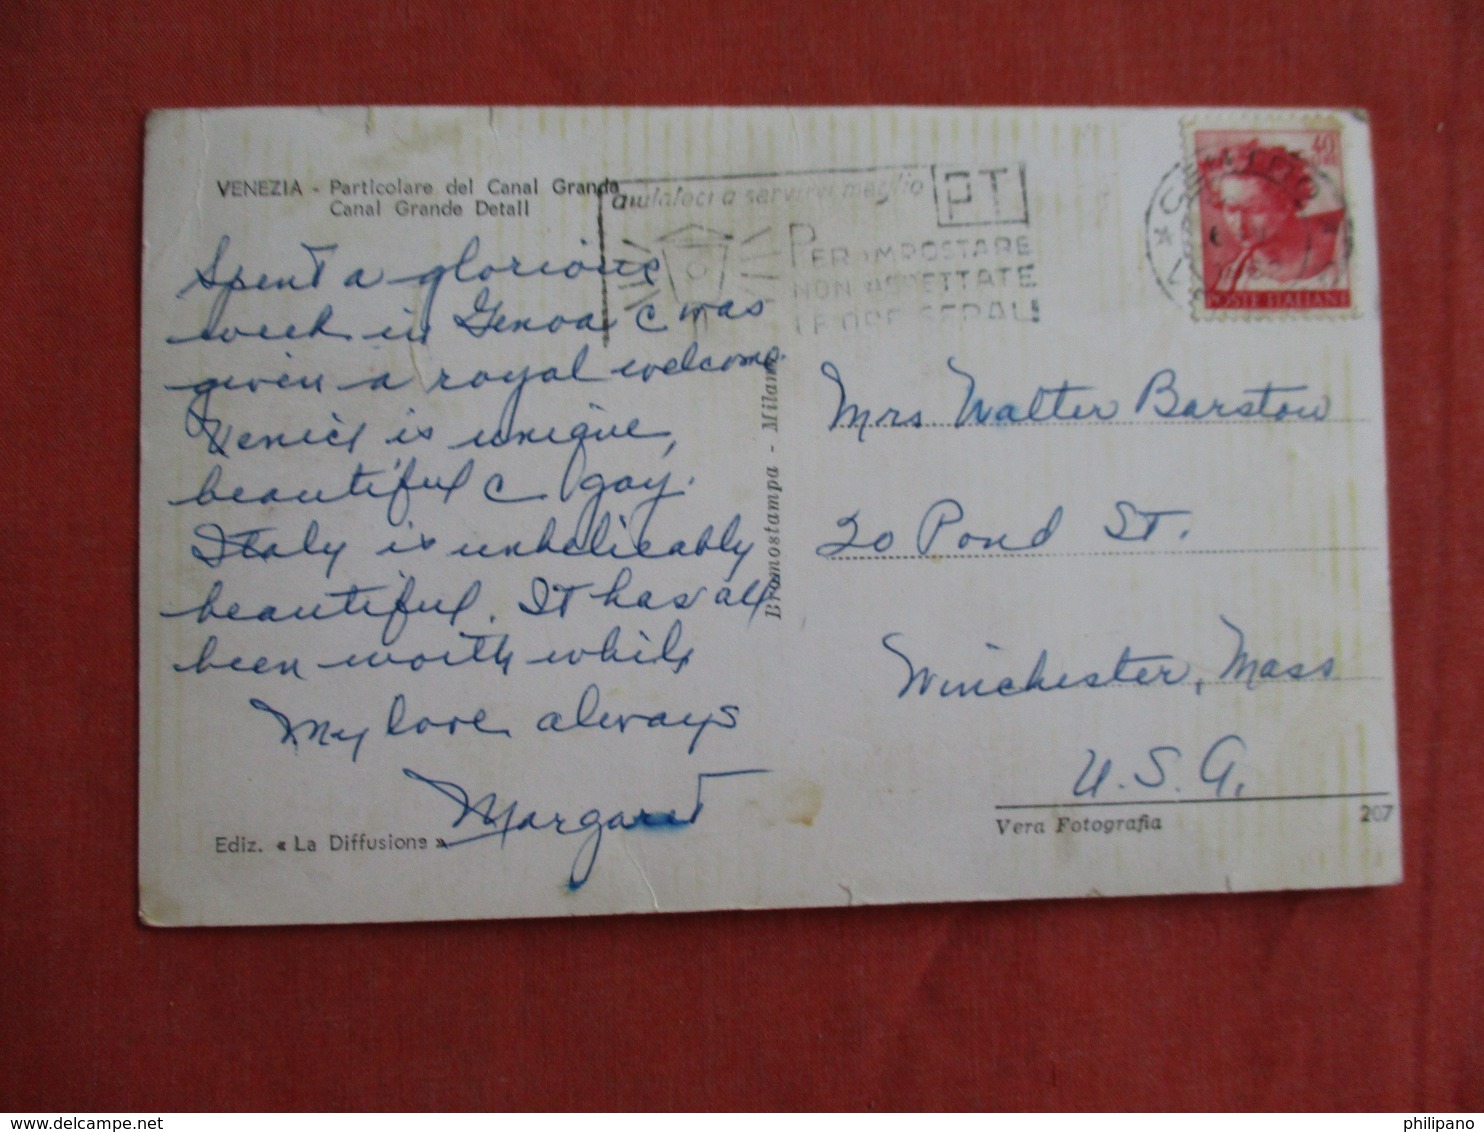 VENEZIA - Particolare del Canal Grande
Canal Grande Detail
aiutateci a servirvi meglio PT
PER IMPOSTARE
NON ASPETTATE
LE ORE SERALI
40
POSTE ITALIANE
Spent a glorious
week in Genoa & was
given a royal welcome.
Venice is unique,
beautiful & gay.
Italy is unbelievably
beautiful. It has all
been worth while
My love always
Margaret
Ediz. « La Diffusione »
Bromostampa - Milano
Mrs Walter Barstow
20 Pond St.
Winchester, Mass
U.S.A.
Vera Fotografia
207
philipano